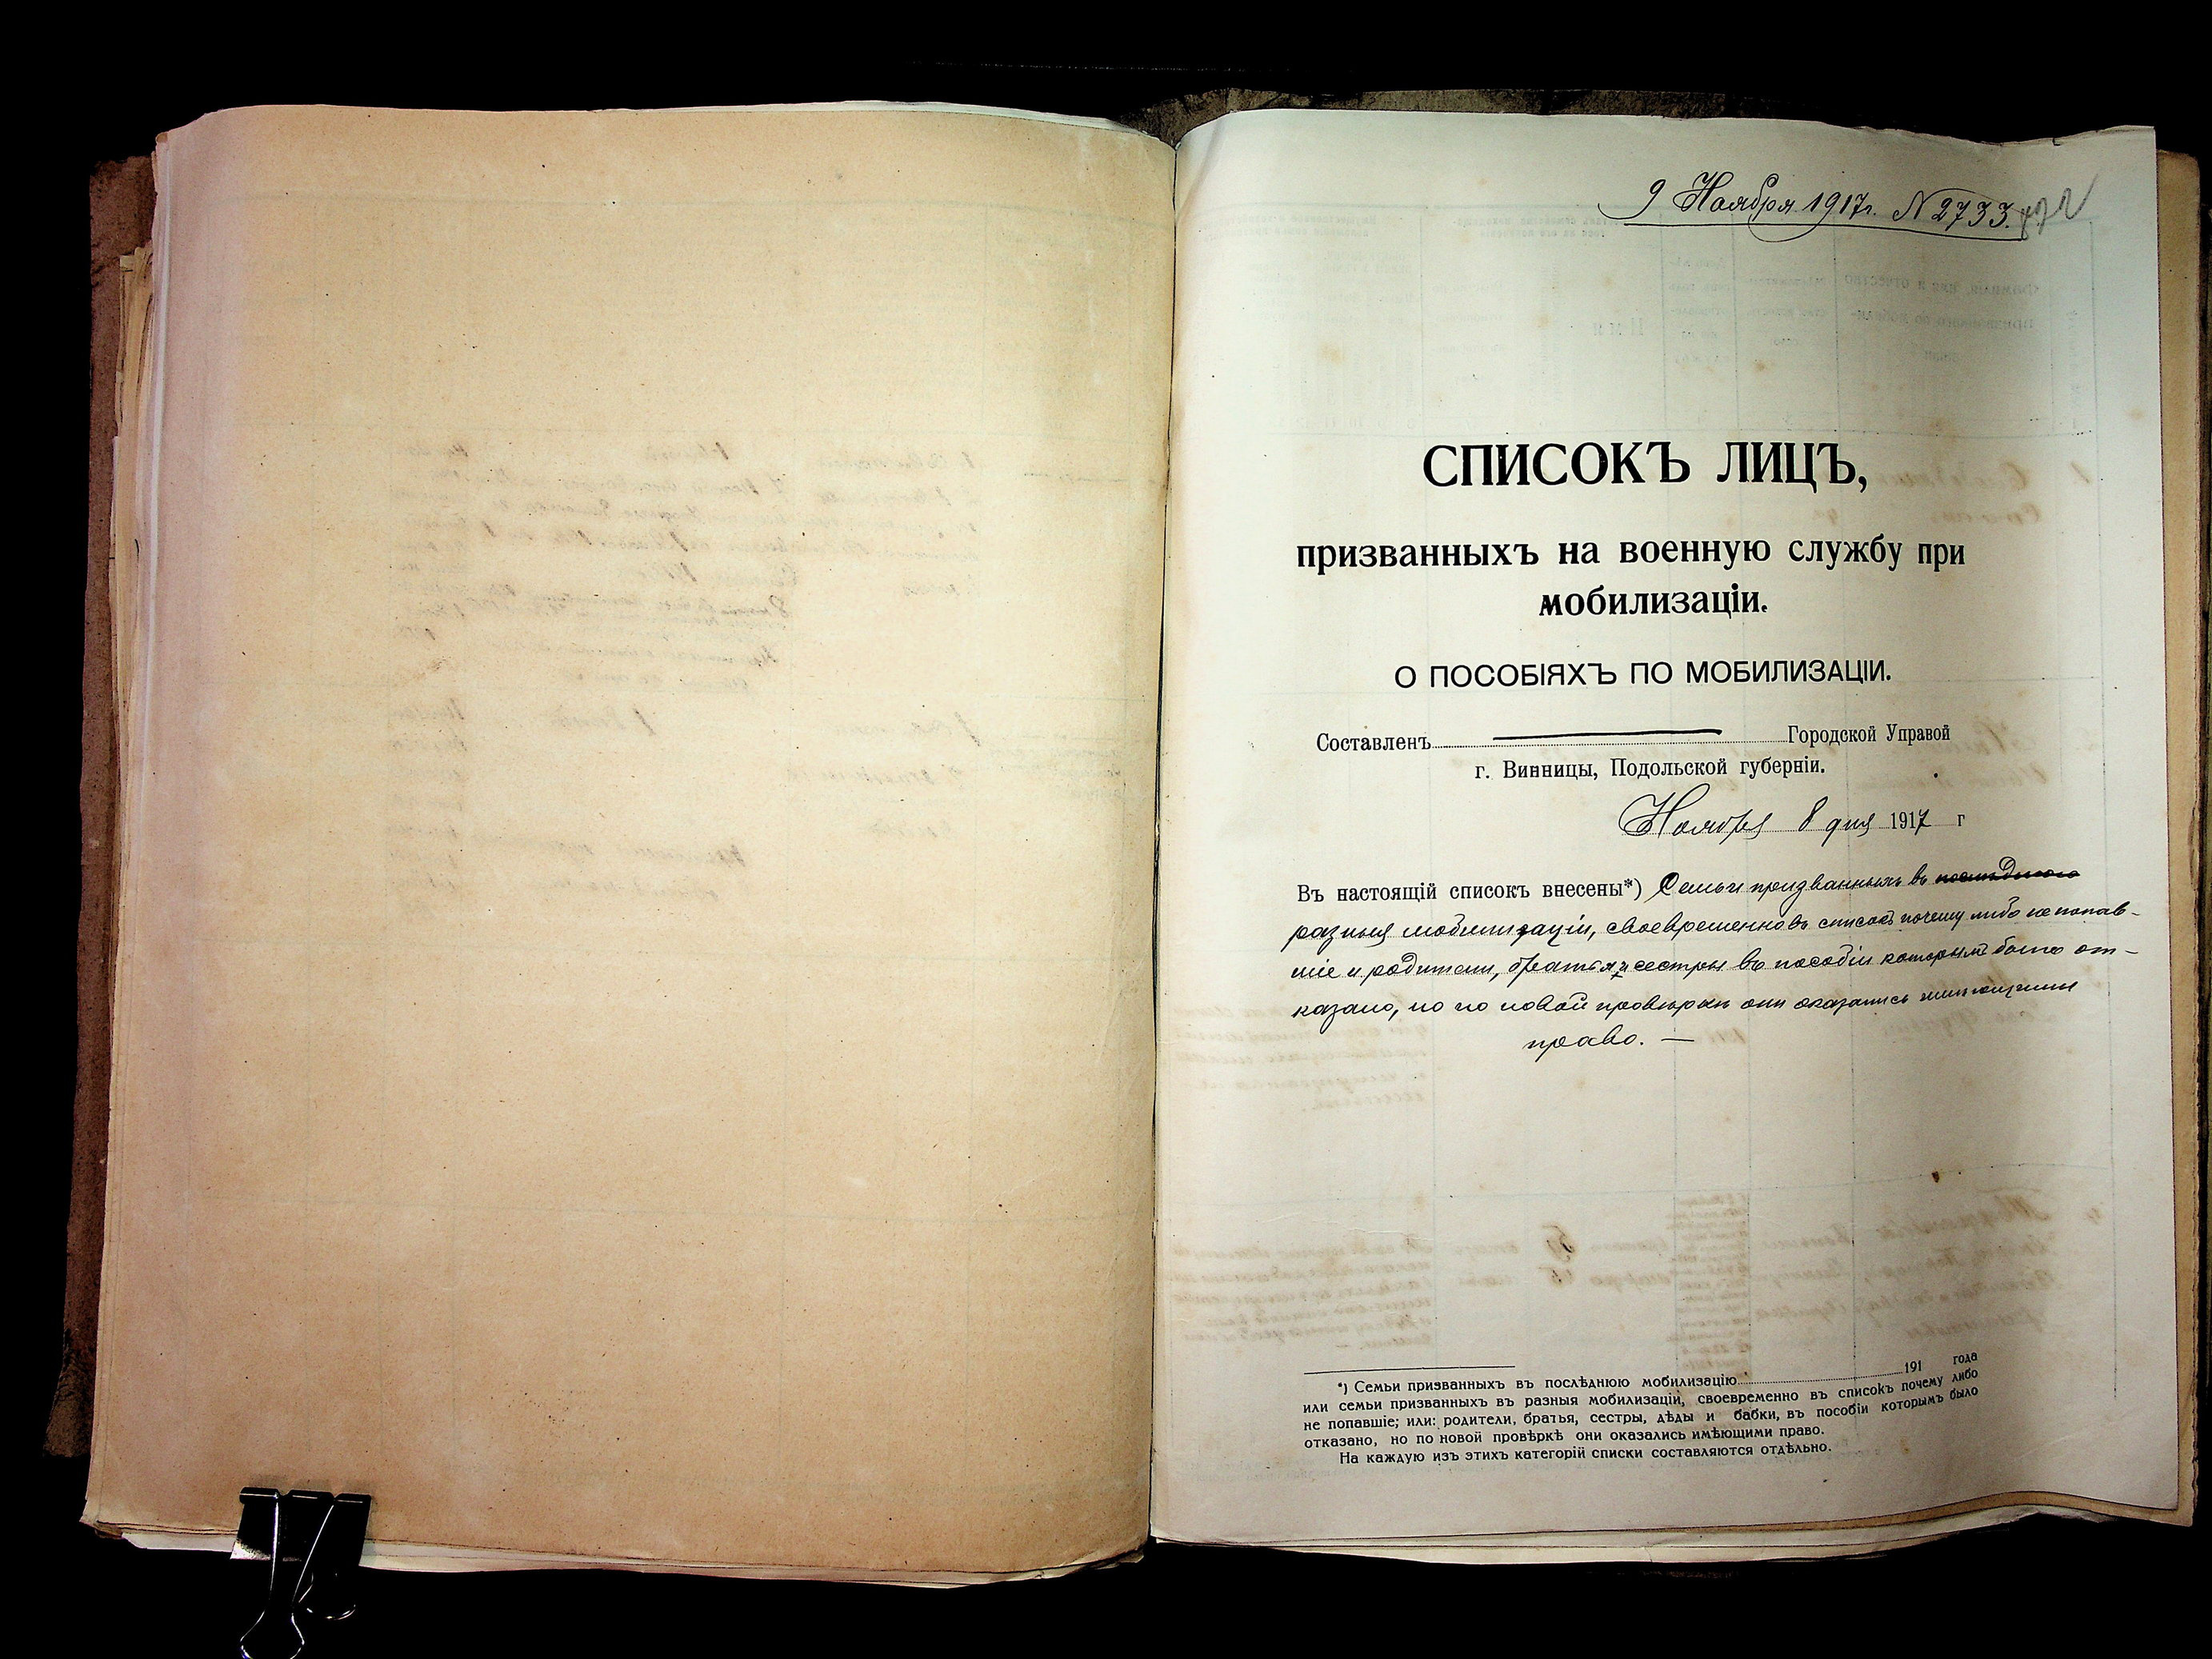 9 Ноября 1917г. N 2733.
СПИСОКЪ ЛИЦЪ,
призванныхъ на военную службу при
мобилизаціи.
О ПОСОБІЯХЪ ПО МОБИЛИЗАЦІИ.
Составленъ Городской Управой
г. Винницы, Подольской губерніи.
Ноября 8 дня 1917 г
Въ настоящій списокъ внесены*) Семьи призванныхъ въ
разныя мобилизаціи, своевременно въ списокъ почему либо не попав-
шіе и родители, братья и сестры въ пособіи которымъ было от-
казано, но по новой провѣркѣ они оказались имѣющими
право. —
*) Семьи призванныхъ въ послѣднюю мобилизацію 191 года
или семьи призванныхъ въ разныя мобилизаціи, своевременно въ списокъ почему либо
не попавшіе; или: родители, братья, сестры, дѣды и бабки, въ пособіи которымъ было
отказано, но по новой провѣркѣ они оказались имѣющими право.
На каждую изъ этихъ категорій списки составляются отдѣльно.